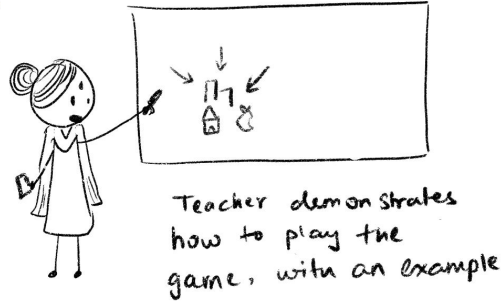 Teacher demonstrates
how to play the
game, with an example